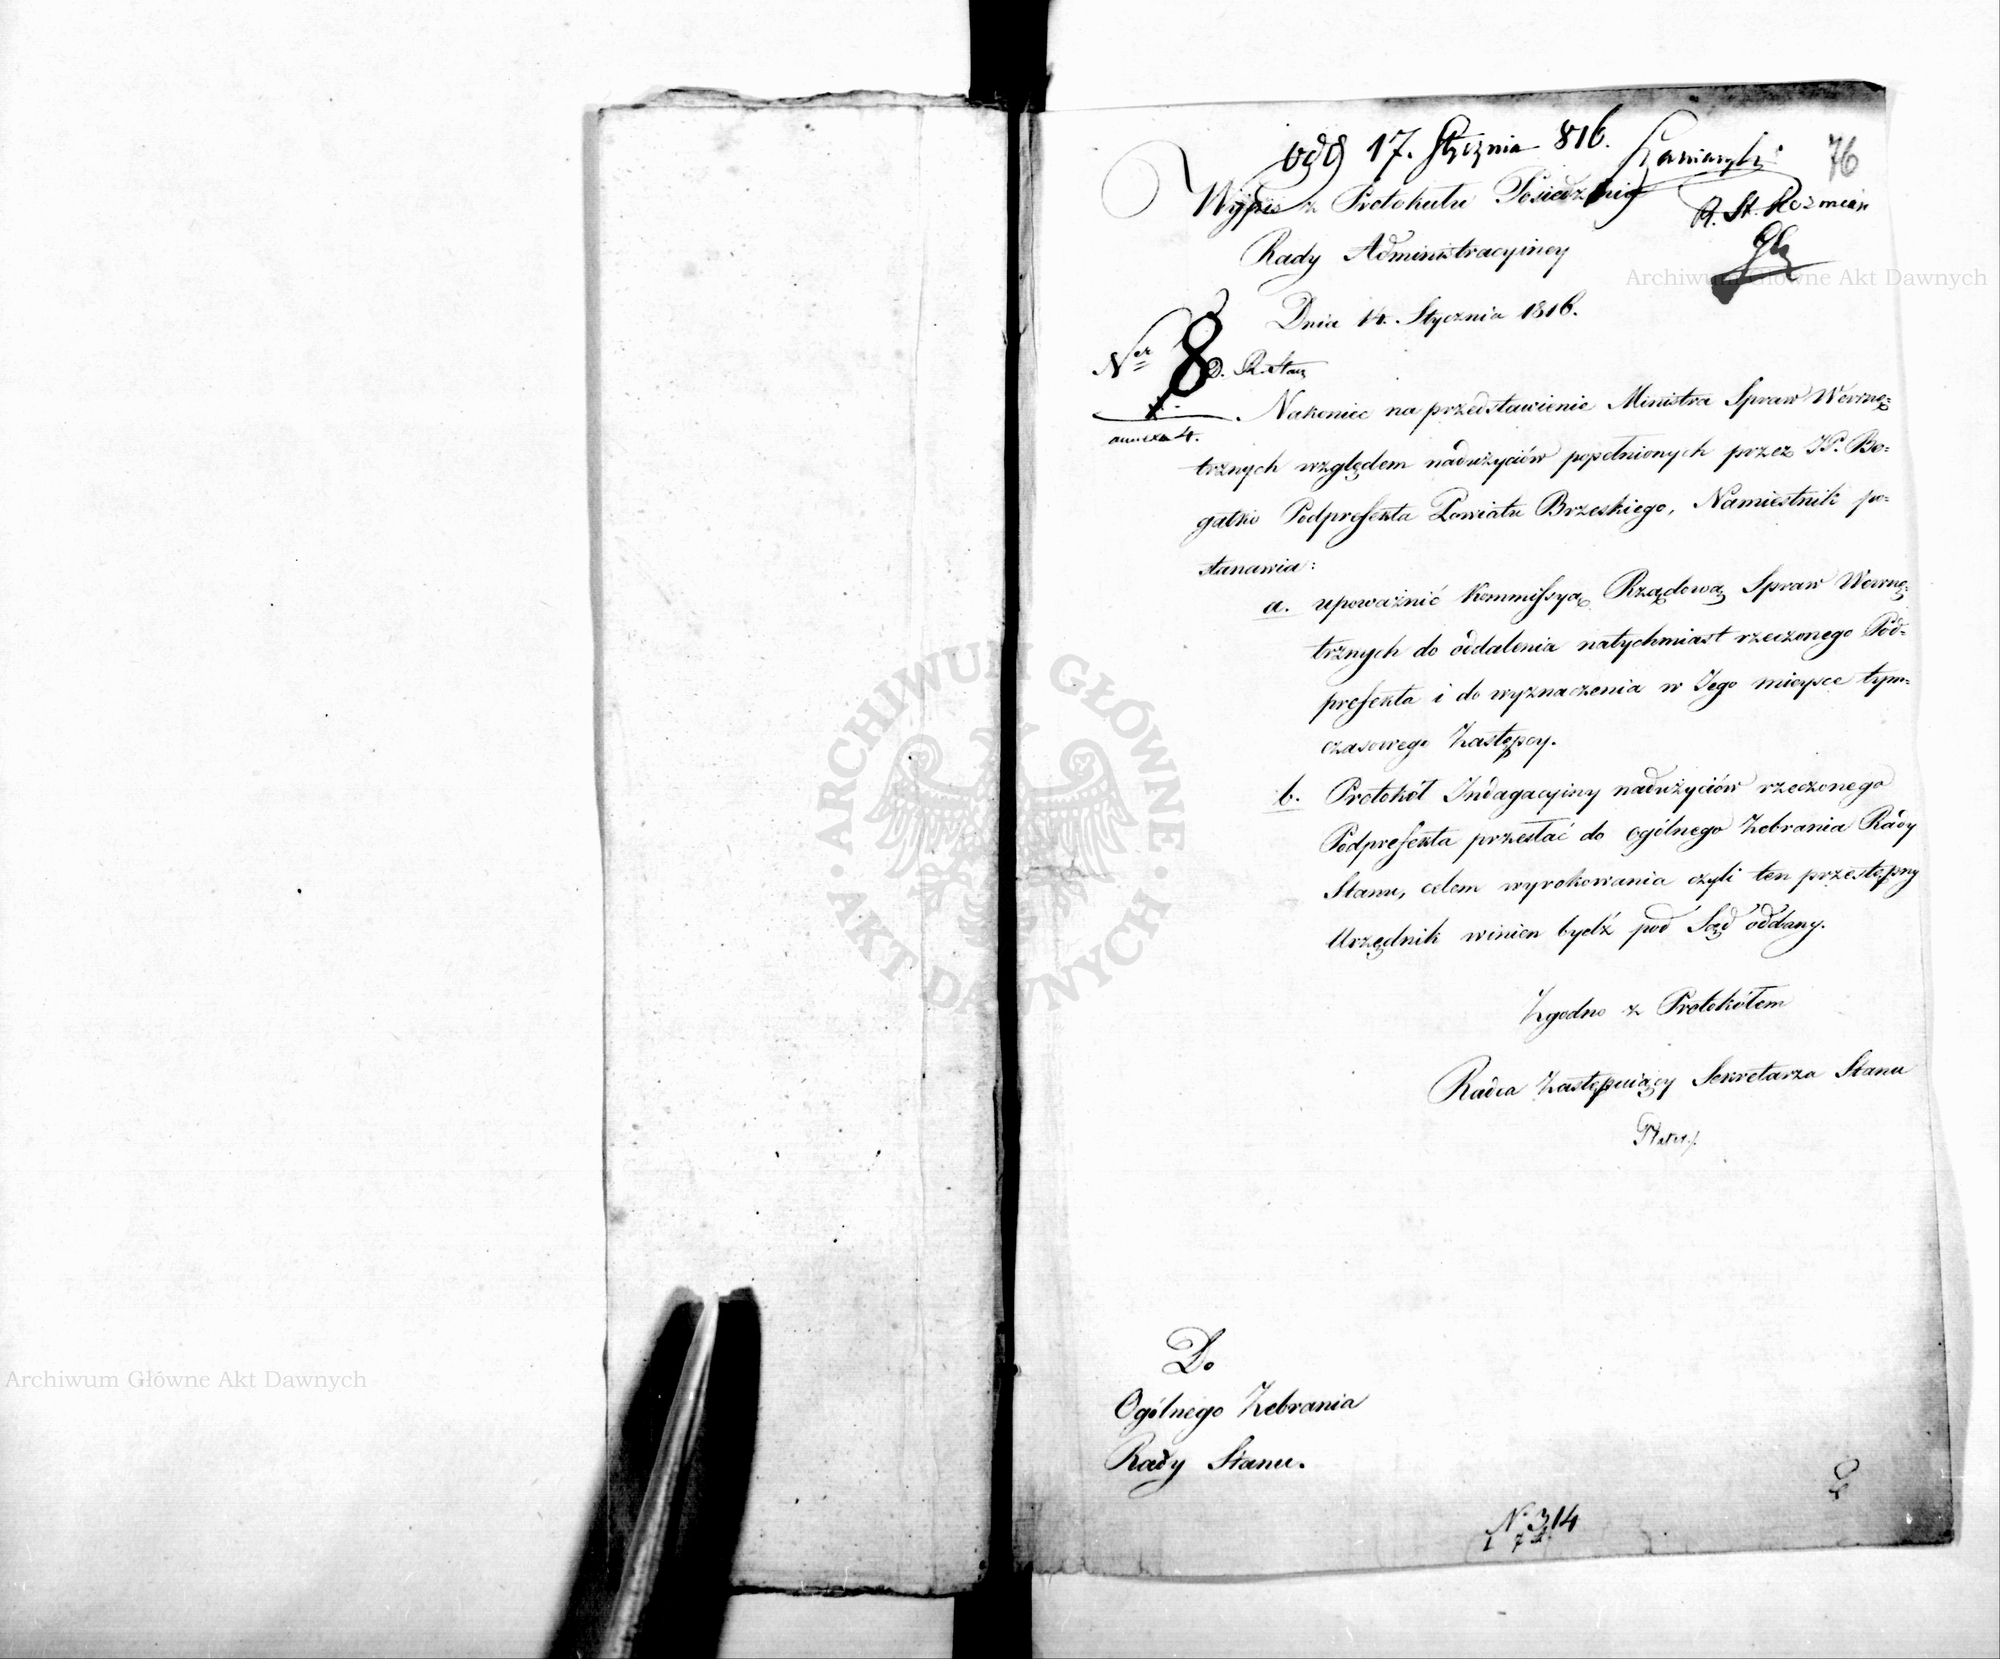 odd 17. Stycznia 816.
76
Wypis z Protokułu Posiedzenia
R. St. Koźmian
Rady Administracyiney
Dnia 14. Stycznia 1816.
Ner 8 D. R. Stanu
annexa 4.
Nakoniec na przedstawienie Ministra Spraw Wewnę=
trznych względem nadużyciów popełnionych przez JP. Bo=
gatko Podprefekta Powiatu Brzeskiego, Namiestnik po=
stanawia:
a. upoważnić Kommissyą Rządową Spraw Wewnę=
trznych do oddalenia natychmiast rzeczonego Pod=
prefekta i do wyznaczenia w Jego mieysce tym=
czasowego Zastępcy.
b. Protokół Indagacyiny nadużyciów rzeczonego
Podprefekta przesłać do ogólnego Zebrania Rady
Stanu, celem wyrokowania czyli ten przestępny
Urzędnik winien bydź pod Sąd oddany.
Zgodno z Protokółem
Radca Zastępuiący Sekretarza Stanu
Do
Ogólnego Zebrania
Rady Stanu.
N. 314
Archiwum Główne Akt Dawnych
ARCHIWUM GŁÓWNE AKT DAWNYCH
Archiwum Główne Akt Dawnych